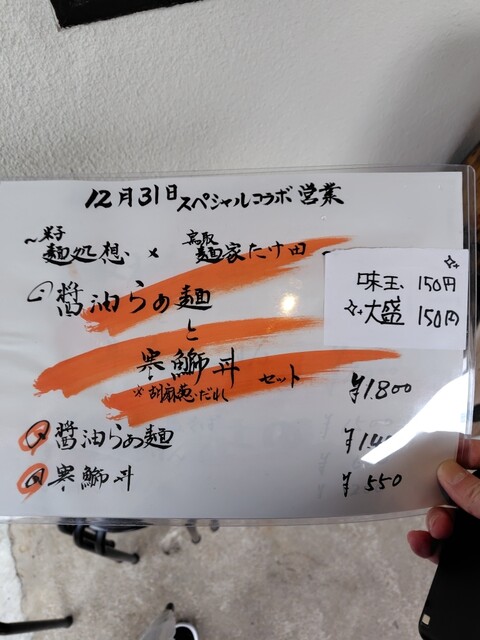 12月31日スペシャルコラボ営業
~米子 麺処想 × 鳥取 麺家たけ田
味玉 150円
大盛 150円
醤油らぁ麺
と
寒鰤丼
※胡麻葱だれ セット ¥1.800
醤油らぁ麺
寒鰤丼 ¥550